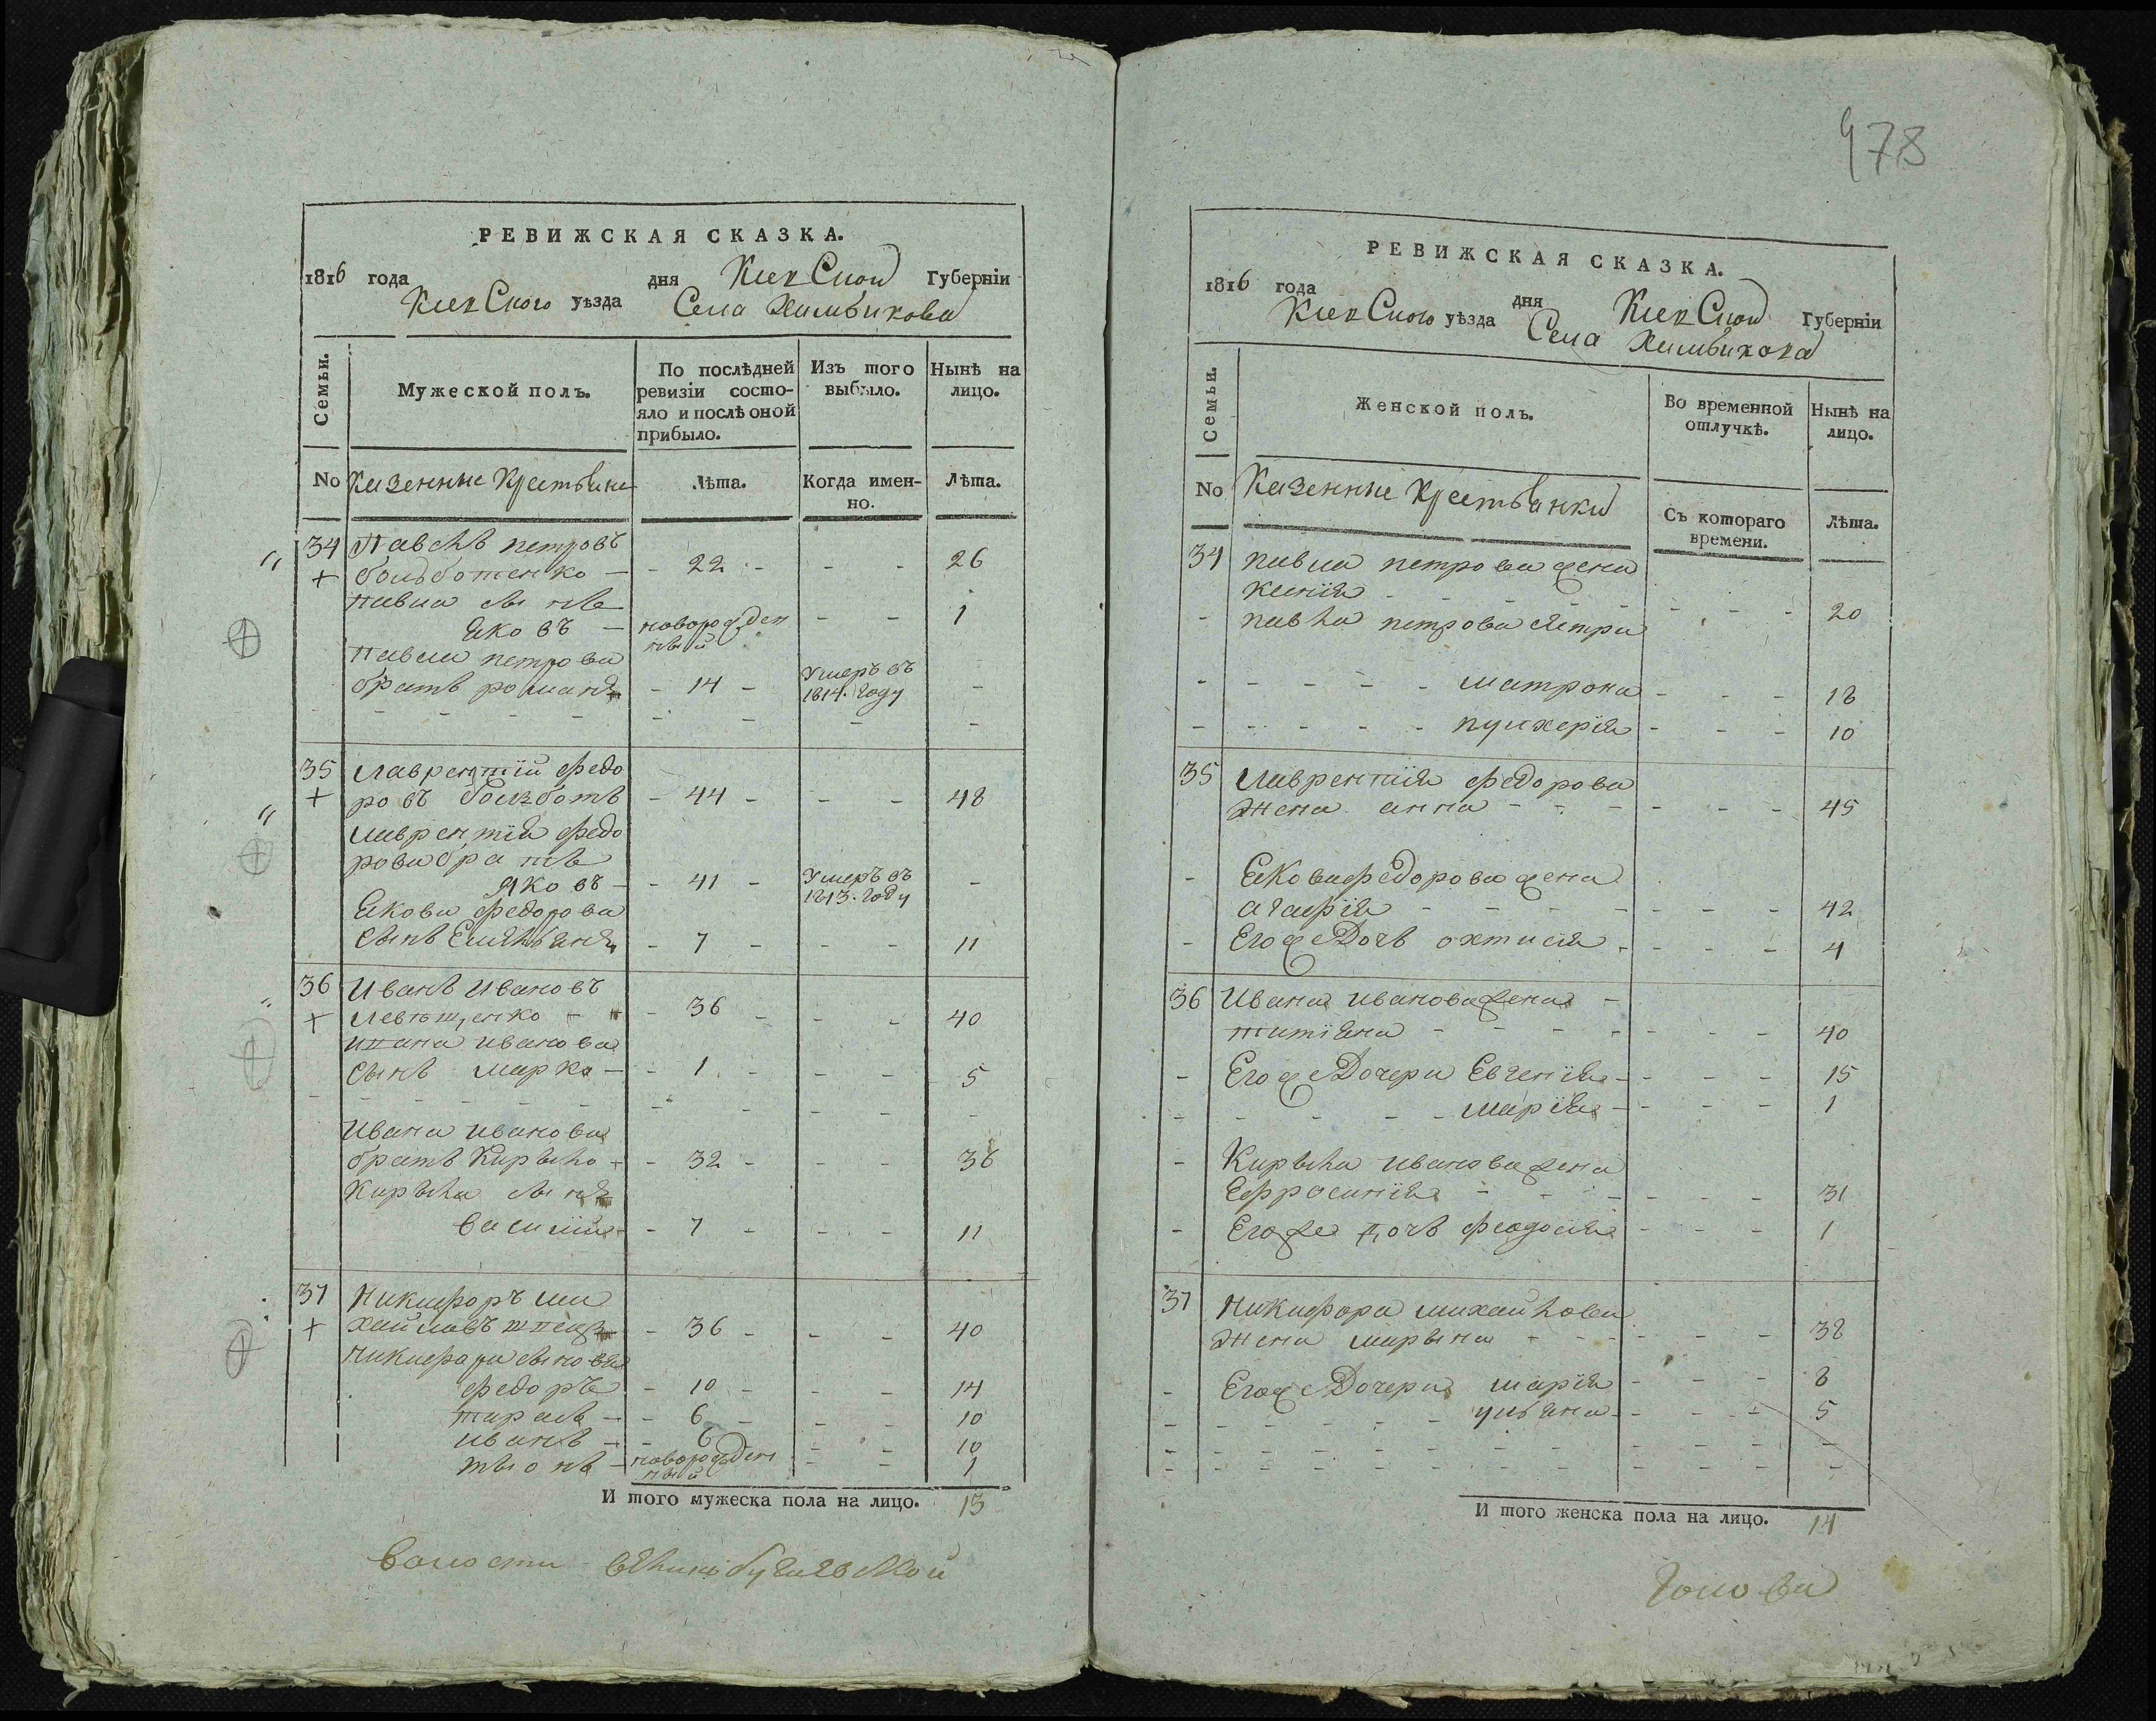 РЕВИЖСКАЯ СКАЗКА.
1816 года дня Киевской Губерніи
Киевского уѣзда Села Халъбикова
Семьи.
Мужеской полъ.
По послѣдней ревизіи состояло и послѣ оной прибыло.
Изъ того выбыло.
Нынѣ на лицо.
No Казенные Крестьяне Лѣта. Когда именно. Лѣта.
34 Павелъ петровъ
- 22 - - - 26
павла сынъ
Яковъ - новорожден - - 1
ный
Павла петрова
Умеръ въ
братъ романъ - 14 - 1814. году -
35 Лаврентій федо
ровъ - 44 - - - 48
лаврентія федо
рова братъ
Яковъ - - 41 - Умеръ въ -
1813. году
Якова федорова
сынъ Емельянъ - 7 - - - 11
36 Иванъ Ивановъ
- 36 - - - 40
ивана иванова
сынъ марко - - 1 - - - 5
Ивана иванова
братъ Кирыло - 32 - - - 36
Кирыла сынъ
василій - 7 - - - 11
37 Никифоръ ми
хайловъ - 36 - - - 40
Никифора сыновья
федоръ - 10 - - - 14
тарасъ - - 6 - - - 10
иванъ - - 6 - - 10
- новорожден - - 1
ный
И того мужеска пола на лицо. 13
волости
978
РЕВИЖСКАЯ СКАЗКА.
1816 года дня Киевской Губерніи
Киевского уѣзда Села Халъбикова
Семьи.
Женской полъ.
Во временной отлучкѣ.
Нынѣ на лицо.
No Казенные Крестьянки Съ котораго времени. Лѣта.
34 павла петрова жена
ксенія - - - 20
- павла петрова сестра
- - - - - матрона - - - 18
- - - - - пулхерія - - - 10
35 лаврентія федорова
жена анна - - - 45
- Якова федорова жена
агафія - - - 42
- Егоже Дочь - - - 4
36 Ивана иванова жена -
татіяна - - - 40
- Егоже Дочери Евгенія - - - 15
- - - - - марія - - - 1
- Кирыла иванова жена
Ефросинія - - - 31
- Егоже дочь феодосія - - - 1
37 Никифора михайлова
жена марына - - - 38
- Егоже Дочери марія - - - 8
- - - - - ульяна - - - 5
И того женска пола на лицо. 14
голова